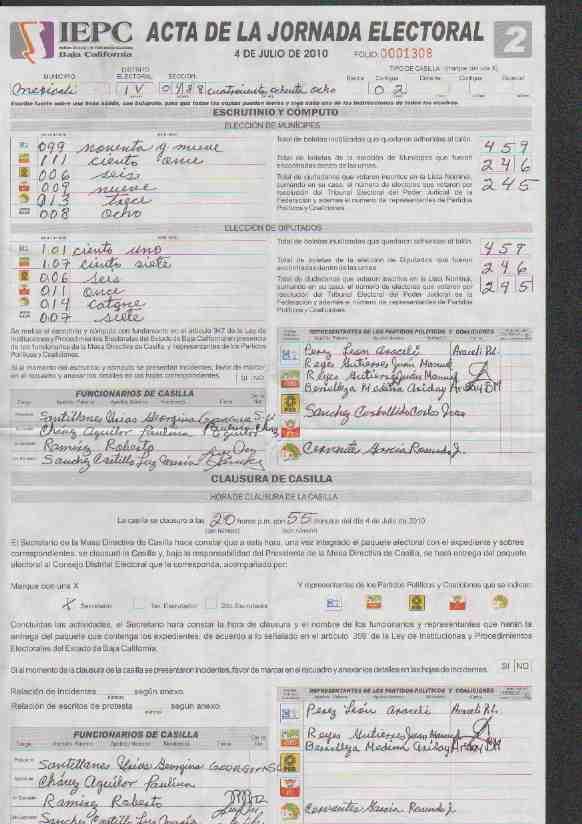 IEPC ACTA DE LA JORNADA ELECTORAL 2
Baja California
4 DE JULIO DE 2010 FOLIO 0001308
TIPO DE CASILLA (marque con una X)
MUNICIPIO DISTRITO ELECTORAL SECCION
Mexicali IV 0488 cuatrocientos ochenta ocho 02
ESCRUTINIO Y CÓMPUTO
ELECCIÓN DE MUNÍCIPES
099 noventa y nueve
111 ciento once
006 seis
009 nueve
013 trece
008 ocho
Total de boletas inutilizadas que quedaron adheridas al talón. 459
Total de boletas de la elección de Munícipes que fueron encontradas dentro de las urnas. 246
Total de ciudadanos que votaron inscritos en la Lista Nominal, sumando en su caso, el número de electores que votaron por resolución del Tribunal Electoral del Poder Judicial de la Federación y además el número de representantes de Partidos Políticos y Coaliciones. 245
ELECCIÓN DE DIPUTADOS
101 ciento uno
107 ciento siete
006 seis
011 once
014 catorce
007 siete
Total de boletas inutilizadas que quedaron adheridas al talón. 457
Total de boletas de la elección de Diputados que fueron encontradas dentro de las urnas. 246
Total de ciudadanos que votaron inscritos en la Lista Nominal, sumando en su caso, el número de electores que votaron por resolución del Tribunal Electoral del Poder Judicial de la Federación y además el número de representantes de Partidos Políticos y Coaliciones. 245
Se realiza el escrutinio y cómputo con fundamento en el artículo 347 de la Ley de Instituciones y Procedimientos Electorales del Estado de Baja California en presencia de los funcionarios de la Mesa Directiva de Casilla y representantes de los Partidos Políticos y Coaliciones.
Si al momento del escrutinio y cómputo se presentaron incidentes, favor de marcar en el recuadro y anexar los detalles en las hojas correspondientes. SI NO
REPRESENTANTES DE LOS PARTIDOS POLÍTICOS Y COALICIONES
Perez León Araceli Araceli P.L.
Reyes Gutierres Juan Manuel
Reyes Gutierres Juan Manuel
Medina Ariday
Sanchez
Garcia Rosendo J.
FUNCIONARIOS DE CASILLA
Santillanes Georgina
Cháirez Aguilar Paulina
Ramirez Roberto
Sanchez Castillo Luz María
CLAUSURA DE CASILLA
HORA DE CLAUSURA DE LA CASILLA
La casilla se clausuró a las 20 horas p.m. con 55 minutos del día 4 de Julio de 2010
El Secretario de la Mesa Directiva de Casilla hace constar que a esta hora, una vez integrado el paquete electoral con el expediente y sobres correspondientes, se clausuró la Casilla y, bajo la responsabilidad del Presidente de la Mesa Directiva de Casilla, se hará entrega del paquete electoral al Consejo Distrital Electoral que le corresponda, acompañado por:
Marque con una X Y representantes de los Partidos Políticos y Coaliciones que se indican:
X Secretario 1er. Escrutador 2do. Escrutador
Concluidas las actividades, el Secretario hará constar la hora de clausura y el nombre de los funcionarios y representantes que harán la entrega del paquete que contenga los expedientes, de acuerdo a lo señalado en el artículo 359 de la Ley de Instituciones y Procedimientos Electorales del Estado de Baja California.
Si al momento de la clausura de la casilla se presentaron incidentes, favor de marcar en el recuadro y anexar los detalles en las hojas de incidentes. SI NO
Relación de incidentes según anexo.
Relación de escritos de protesta según anexo.
REPRESENTANTES DE LOS PARTIDOS POLÍTICOS Y COALICIONES
Perez León Araceli Araceli P.L.
Reyes Gutierres Juan Manuel
Medina Ariday
Cervantes Garcia Rosendo J.
FUNCIONARIOS DE CASILLA
Santillanes Georgina
Cháirez Aguilar Paulina
Ramirez Roberto
Sanchez Castillo Luz María